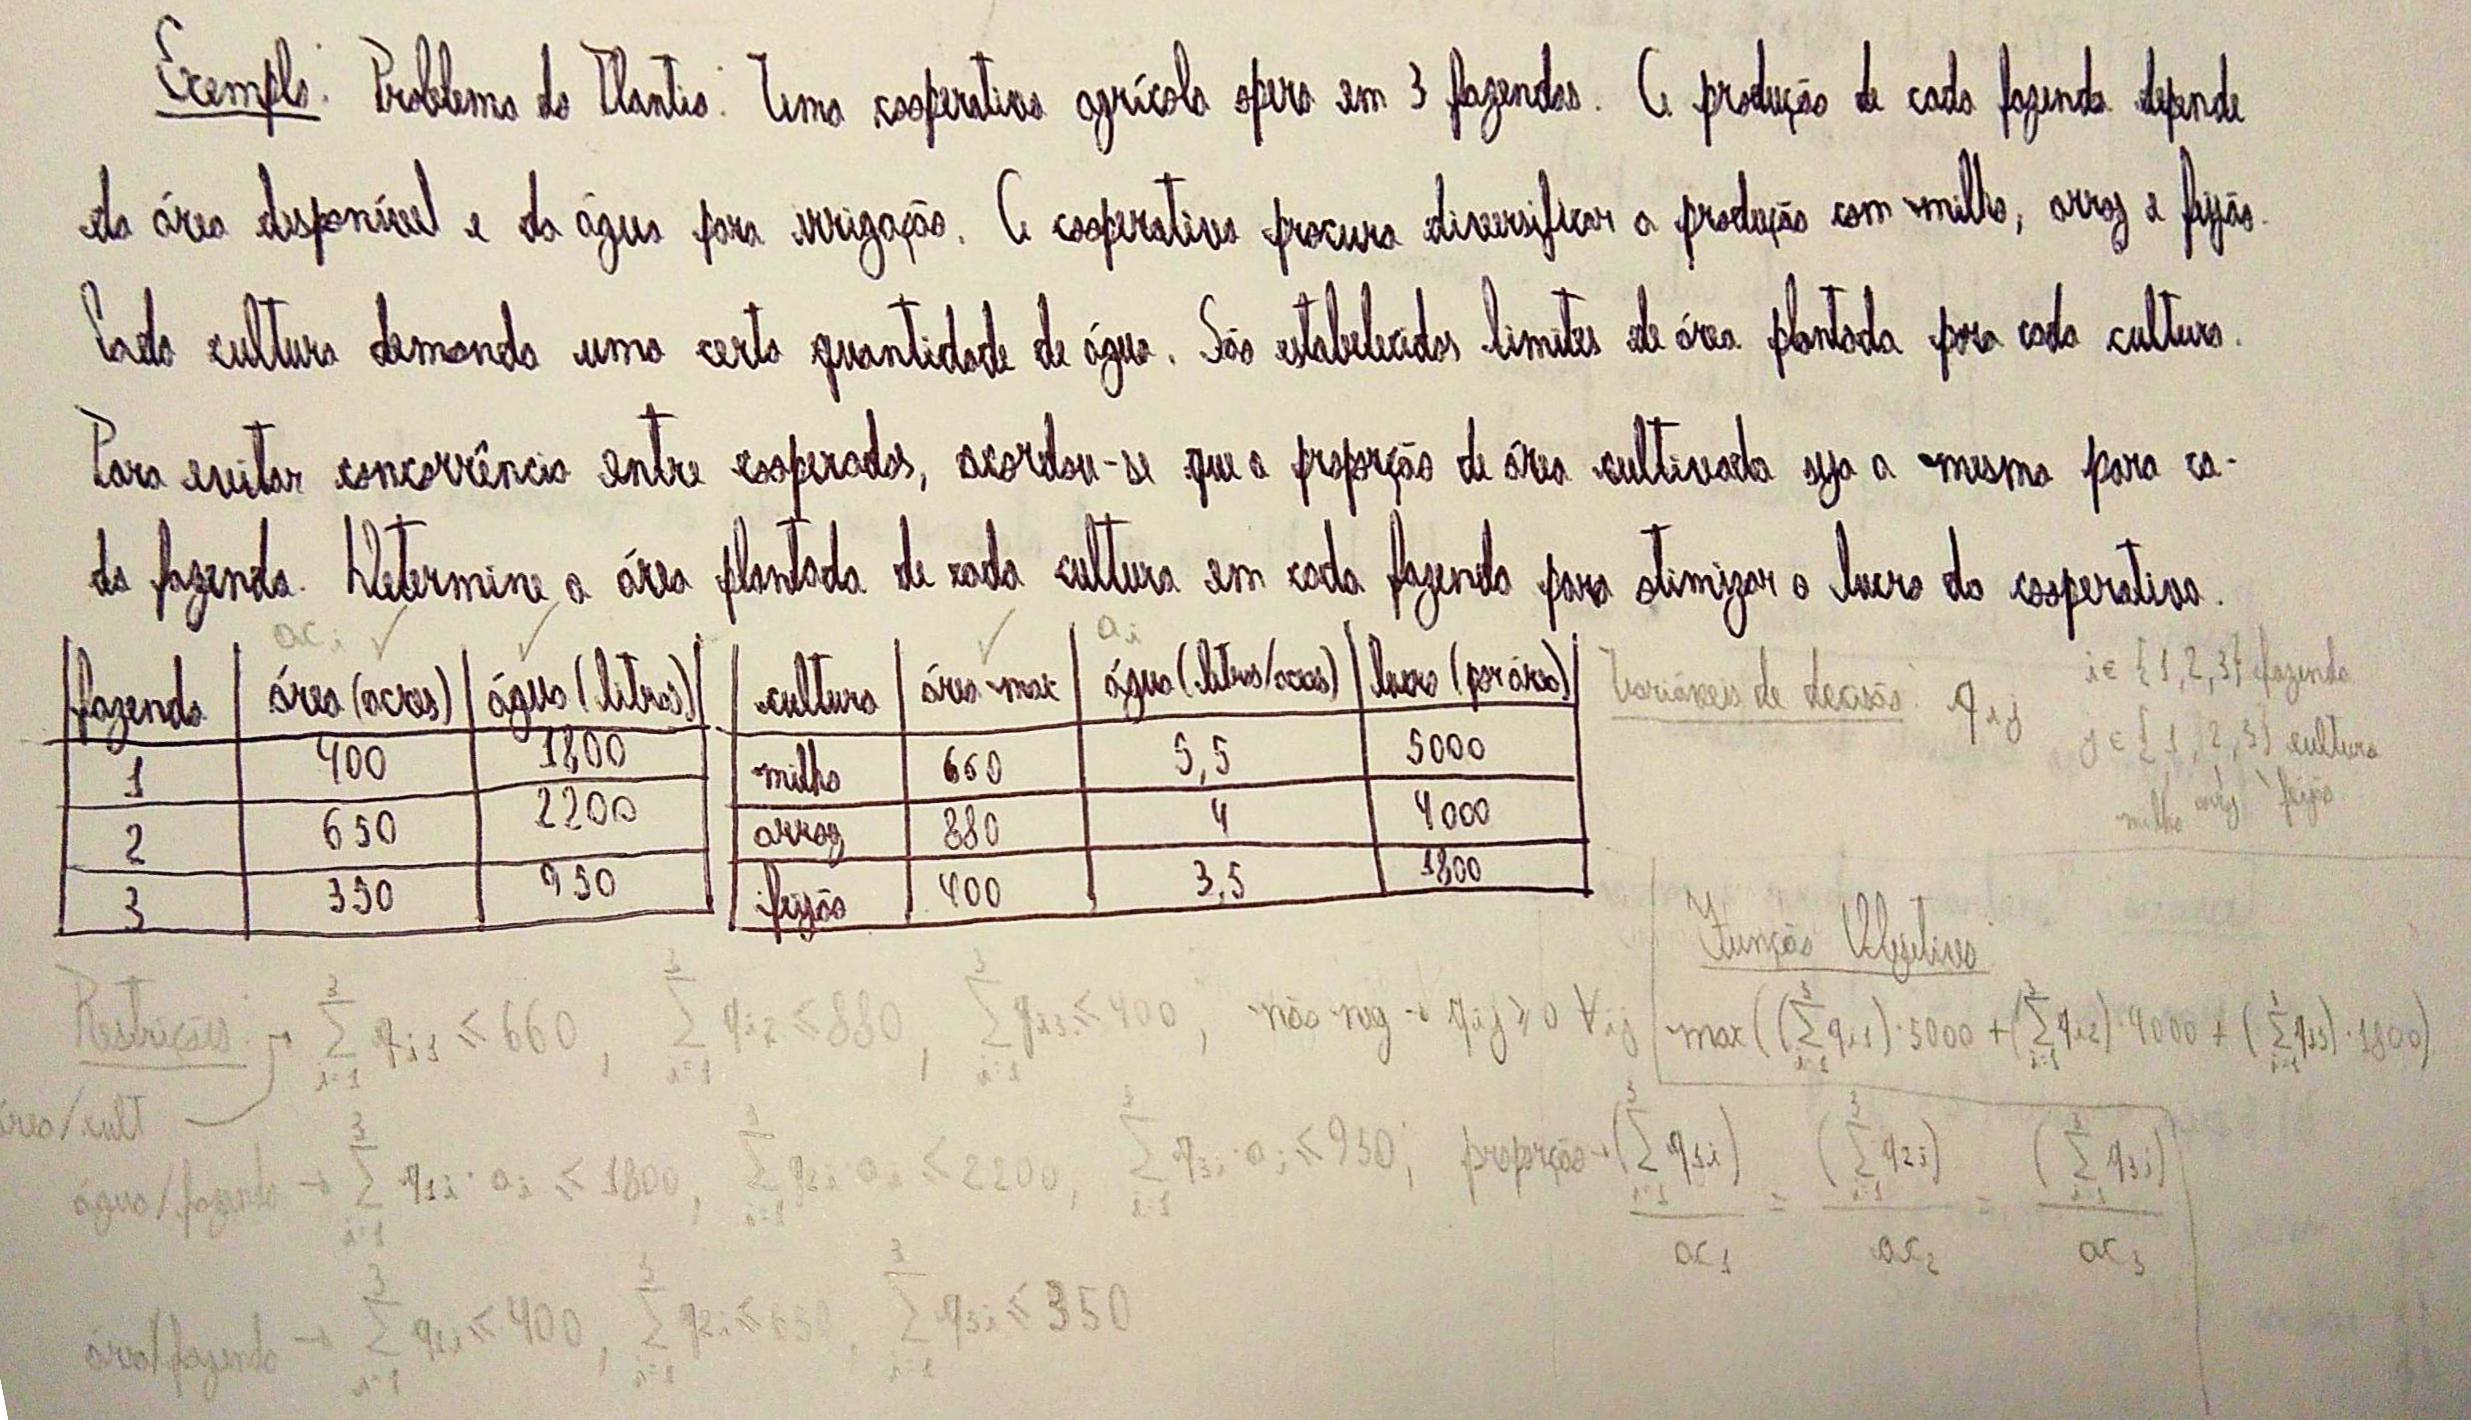 Exemplo: Problema do Plantio: Uma cooperativa agrícola opera em 3 fazendas. A produção de cada fazenda depende
da área disponível e da água para irrigação. A cooperativa procura diversificar a produção com milho, arroz e feijão.
Cada cultura demanda uma certa quantidade de água. São estabelecidos limites de área plantada para cada cultura.
Para evitar concorrência entre cooperados, acordou-se que a proporção de área cultivada seja a mesma para ca-
da fazenda. Determine a área plantada de cada cultura em cada fazenda para otimizar o lucro da cooperativa.
ac_i ✓ ✓ ✓ a_i
fazenda | área (acres) | água (litros)
1 | 400 | 1800
2 | 650 | 2200
3 | 350 | 950
cultura | área max | água (litros/acres) | lucro (por área)
milho | 660 | 5,5 | 5000
arroz | 880 | 4 | 4000
feijão | 400 | 3,5 | 1800
Variáveis de decisão: q_ij i ∈ {1,2,3} fazenda
j ∈ {1,2,3} cultura
milho arroz feijão
Função Objetivo
max((∑_{i=1}^{3} q_i1)·5000 + (∑_{i=1}^{3} q_i2)·4000 + (∑_{i=1}^{3} q_i3)·1800)
Restrições: ∑_{i=1}^{3} q_i1 ≤ 660, ∑_{i=1}^{3} q_i2 ≤ 880, ∑_{i=1}^{3} q_i3 ≤ 400, não neg → q_ij ≥ 0 ∀ij
área/cult
água/fazenda → ∑_{i=1}^{3} q_1i · a_i ≤ 1800, ∑_{i=1}^{3} q_2i · a_i ≤ 2200, ∑_{i=1}^{3} q_3i · a_i ≤ 950; proporção → (∑_{i=1}^{3} q_1i)/ac_1 = (∑_{i=1}^{3} q_2i)/ac_2 = (∑_{i=1}^{3} q_3i)/ac_3
área/fazenda → ∑_{i=1}^{3} q_1i ≤ 400, ∑_{i=1}^{3} q_2i ≤ 650, ∑_{i=1}^{3} q_3i ≤ 350